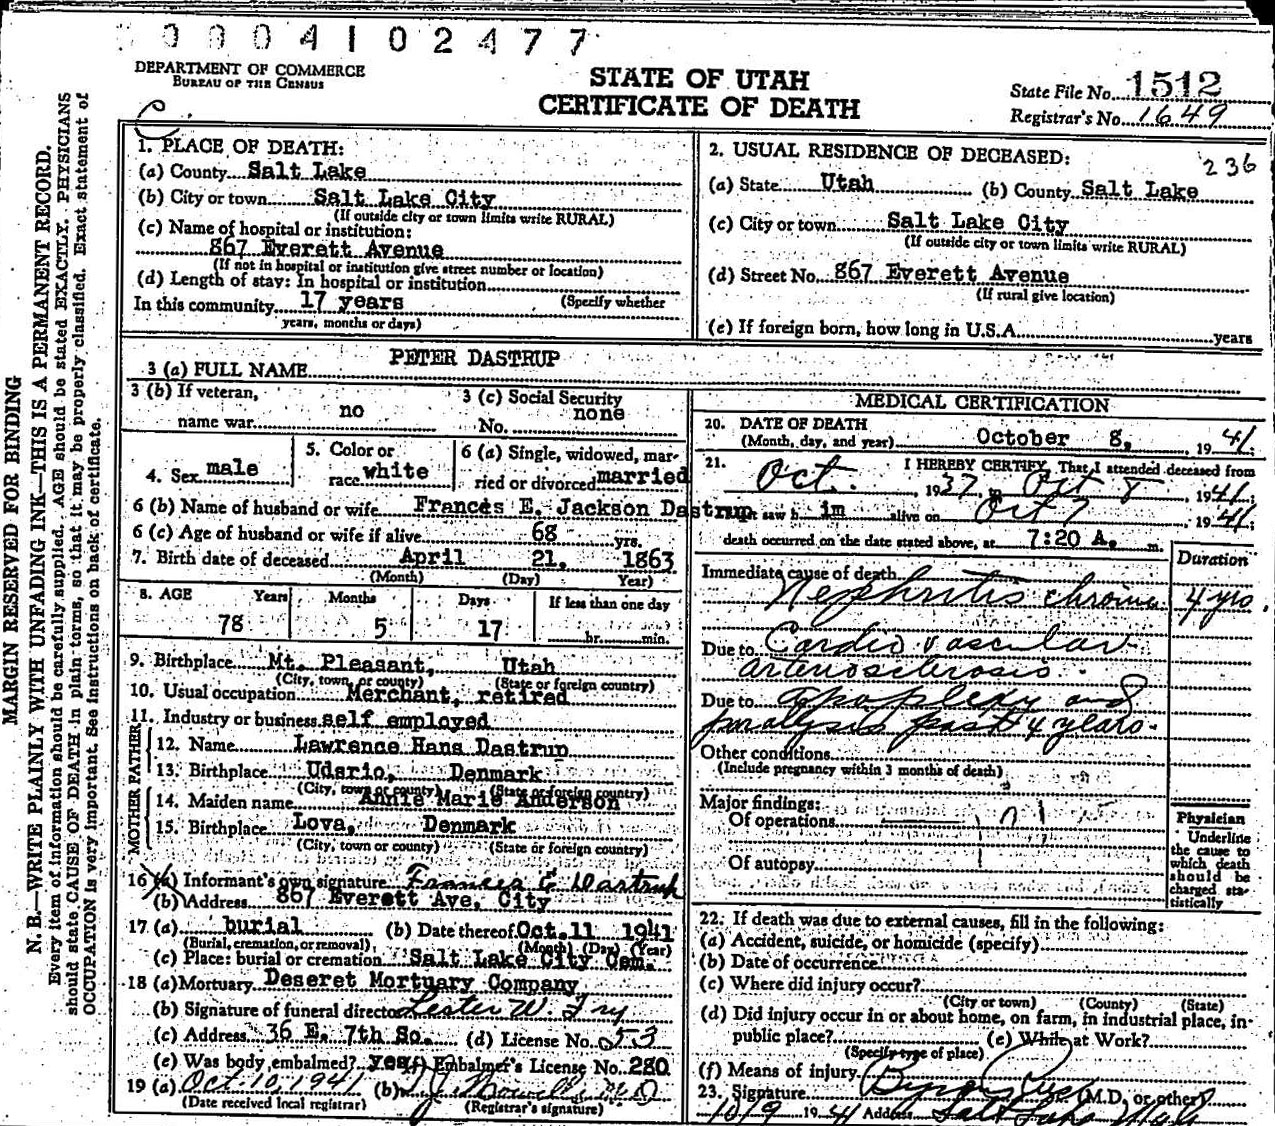 0004102477
DEPARTMENT OF COMMERCE
BUREAU OF THE CENSUS
STATE OF UTAH
CERTIFICATE OF DEATH
State File No. 1512
Registrar's No. 1649
C.
236
MARGIN RESERVED FOR BINDING
N. B.—WRITE PLAINLY WITH UNFADING INK—THIS IS A PERMANENT RECORD.
Every item of information should be carefully supplied. AGE should be stated EXACTLY. PHYSICIANS
should state CAUSE OF DEATH in plain terms, so that it may be properly classified. Exact statement of
OCCUPATION is very important. See instructions on back of certificate.
1. PLACE OF DEATH:
(a) County Salt Lake
(b) City or town Salt Lake City
(If outside city or town limits write RURAL)
(c) Name of hospital or institution:
867 Everett Avenue
(If not in hospital or institution give street number or location)
(d) Length of stay: In hospital or institution
In this community 17 years (Specify whether
years, months or days)
2. USUAL RESIDENCE OF DECEASED:
(a) State Utah (b) County Salt Lake
(c) City or town Salt Lake City
(If outside city or town limits write RURAL)
(d) Street No. 867 Everett Avenue
(If rural give location)
(e) If foreign born, how long in U.S.A. years
3 (a) FULL NAME PETER DASTRUP
3 (b) If veteran, name war no
3 (c) Social Security No. none
4. Sex male
5. Color or race white
6 (a) Single, widowed, married or divorced married
6 (b) Name of husband or wife Frances E. Jackson Dastrup
6 (c) Age of husband or wife if alive 68 yrs.
7. Birth date of deceased April 21, 1863
(Month) (Day) Year)
8. AGE Years Months Days If less than one day
78 5 17 hr. min.
9. Birthplace Mt. Pleasant, Utah
(City, town, or county) (State or foreign country)
10. Usual occupation Merchant, retired
11. Industry or business self employed
FATHER
12. Name Lawrence Hans Dastrup
13. Birthplace Udsrio, Denmark
(City, town or county) (State or foreign country)
MOTHER
14. Maiden name Annie Marie Anderson
15. Birthplace Lova, Denmark
(City, town or county) (State or foreign country)
16 (a) Informant's own signature Frances E Dastrup
(b) Address 867 Everett Ave, City
17 (a) burial (b) Date thereof Oct. 11 1941
(Burial, cremation, or removal) (Month) (Day) (Year)
(c) Place: burial or cremation Salt Lake City Cem.
18 (a) Mortuary Deseret Mortuary Company
(b) Signature of funeral director Lester W. Fry
(c) Address 36 E. 7th So. (d) License No. 53
(e) Was body embalmed? yes (f) Embalmer's License No. 280
19 (a) Oct 10, 1941 (b)
(Date received local registrar) (Registrar's signature)
MEDICAL CERTIFICATION
20. DATE OF DEATH
(Month, day, and year) October 8, 1941
21. I HEREBY CERTIFY, That I attended deceased from
Oct. , 1937 to Oct 8 , 1941;
saw h im alive on Oct 7 1941;
death occurred on the date stated above, at 7:20 A. m.
Duration
Immediate cause of death
Nephritis chronic 4 yrs.
Due to Cardio vascular
arteriosclerosis.
Due to apoplexy and
paralysis past 4 years.
Other conditions
(Include pregnancy within 3 months of death)
Major findings:
Of operations
Of autopsy
Physician
Underline
the cause to
which death
should be
charged sta-
tistically
22. If death was due to external causes, fill in the following:
(a) Accident, suicide, or homicide (specify)
(b) Date of occurrence
(c) Where did injury occur?
(City or town) (County) (State)
(d) Did injury occur in or about home, on farm, in industrial place, in-
public place? (e) While at Work?
(Specify type of place)
(f) Means of injury
23. Signature (M.D. or other)
10/9 1941 Address Salt Lake